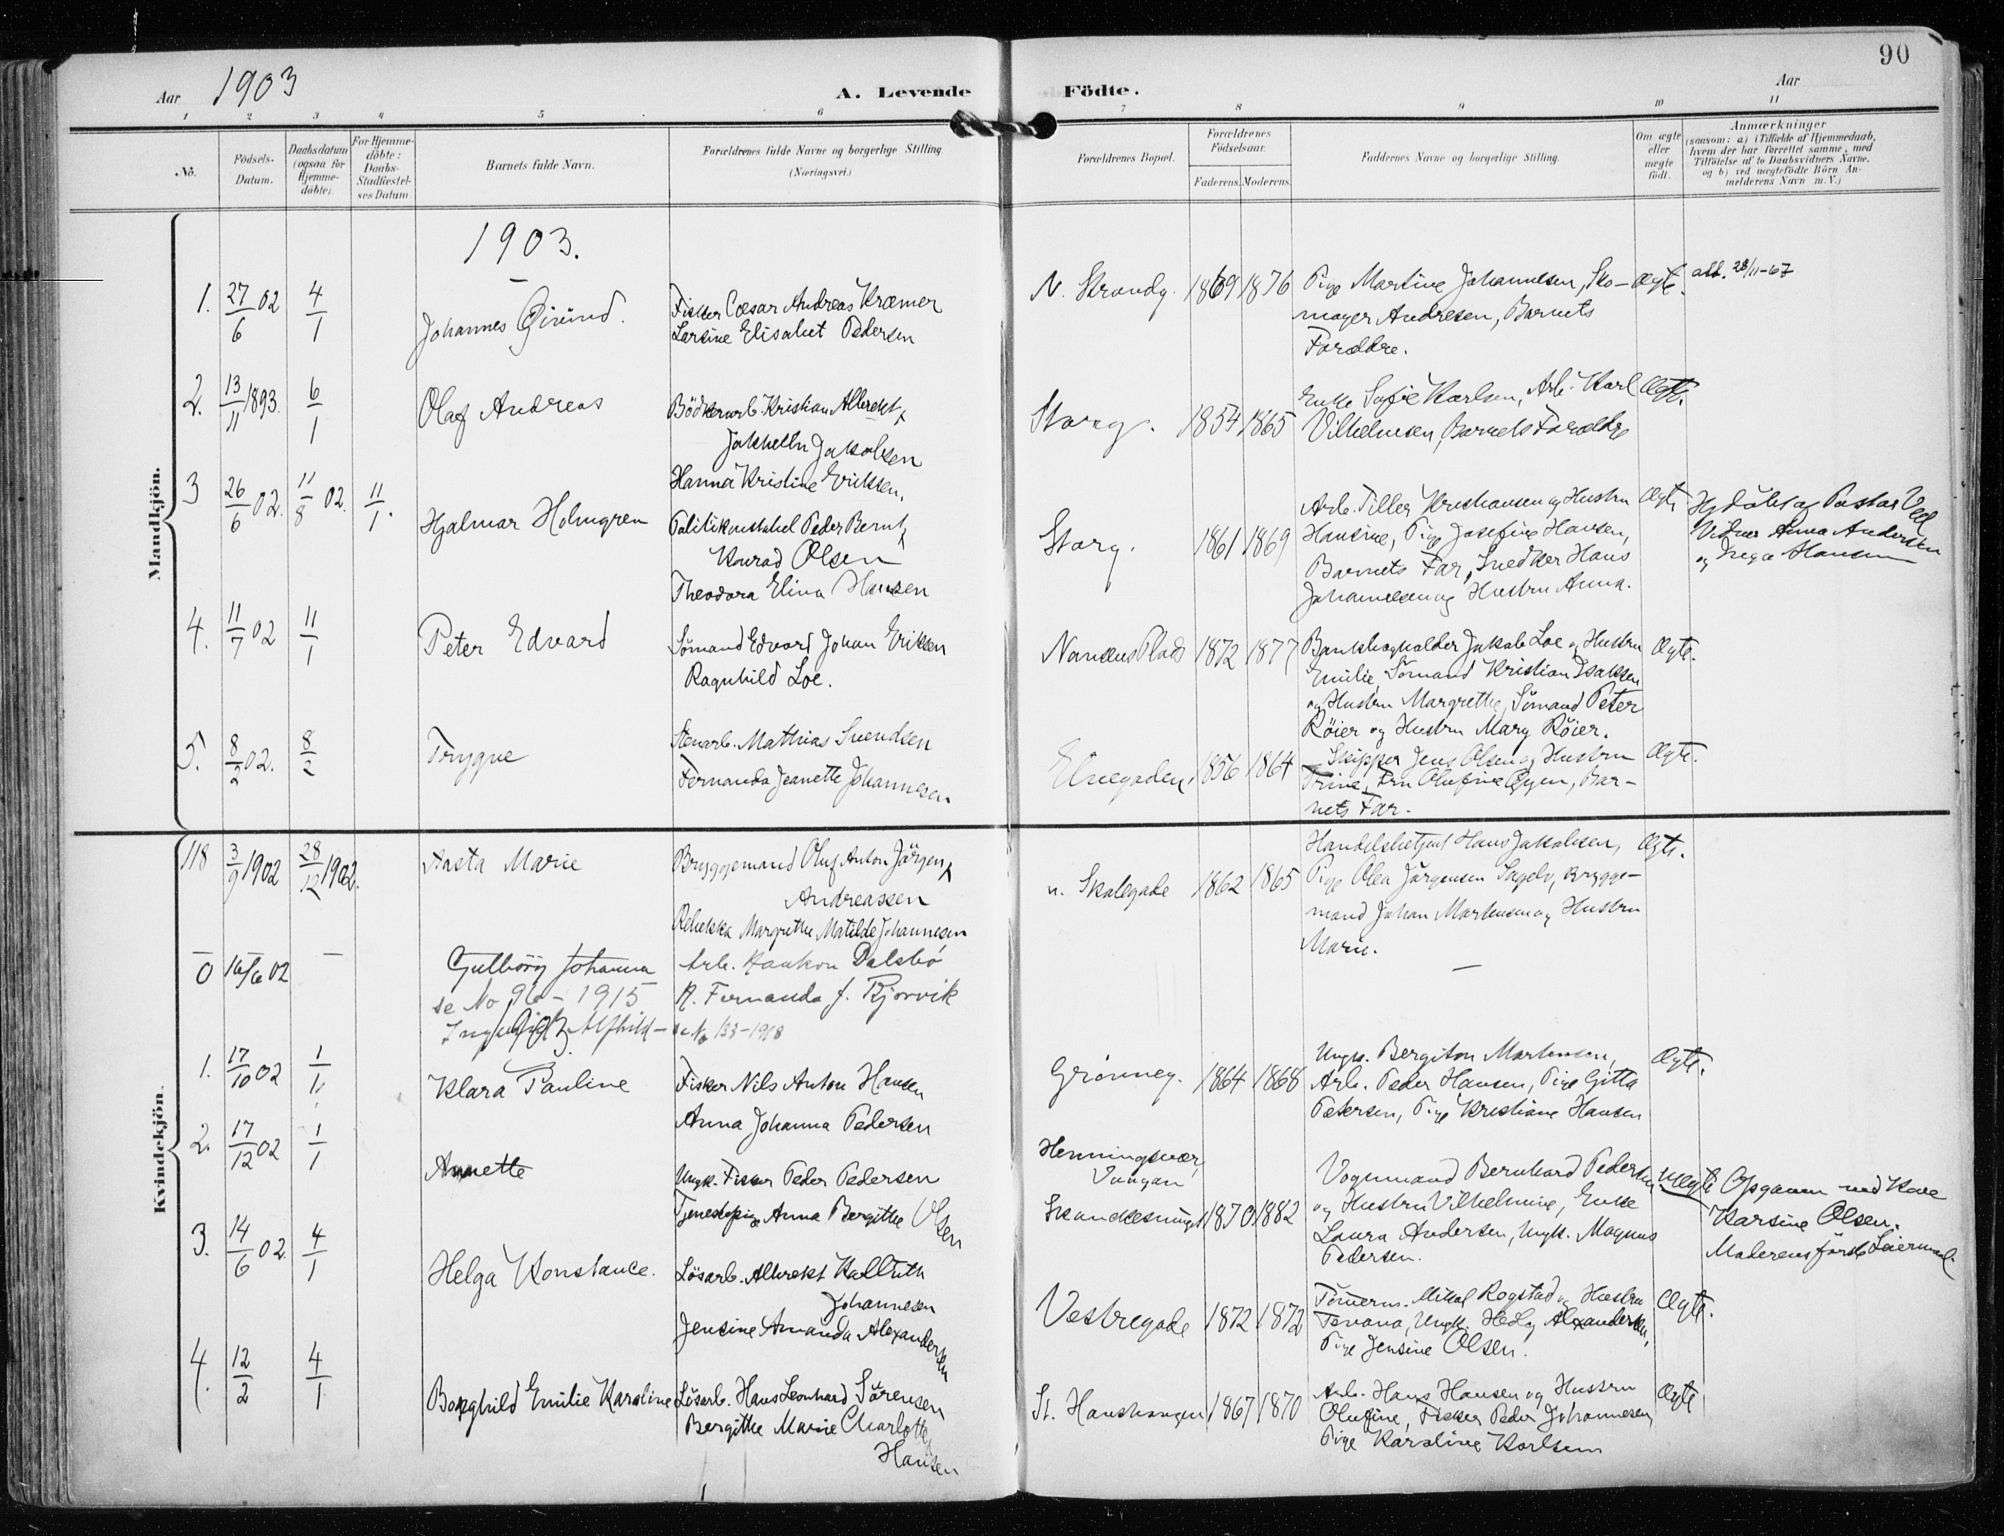 90
Aar 1903
A. Levende Födte.
Aar
1 2 3 4 5 6 7 8 9 10 11
No.
Födsels-Datum.
Daabsdatum (ogsaa for Hjemme-döbte).
For Hjemme-döbte: Daabs-Stadfæstel-ses Datum.
Barnets fulde Navn.
Forældrenes fulde Navne og borgerlige Stilling. (Næringsvei.)
Forældrenes Bopæl.
Forældrenes Födselsaar.
Faderens. Moderens.
Faddernes Navne og borgerlige Stilling.
Om ægte eller uægte födt.
Anmærkninger
(saasom: a) i Tilfælde af Hjemmedaab, hvem der har forrettet samme, med Tilföielse af to Daabsvidners Navne, og b) ved uægtefödte Börn An-melderens Navn m. V.)
Mandkjön.
1903.
1. 27/6 02 4/1 Johannes Eivind. Fisker Cæsar Andreas Kræmer
Larsine Elisabet Pedersen
N. Strandg. 1869 1876 Pige Martine Johannesen, Sko-
mager Andresen, Barnets
Forældre.
Ægte. 28/11-67
2. 13/11 1893. 6/1 Olaf Andreas Bödkerarb. Kristian Albrekt
Jakobsen
Hanna Kristine Eriksen,
Storg. 1854 1865 Enke Sofie Karlsen, Arb. Karl
Vilhelmsen, Barnets Forældre
Ægte.
3 26/6 02. 11/8 02. 11/1. Hjalmar Holmgren Politikonstabel Peder Bernt
Konrad Olsen
Theodora Elina Hansen
Storg. 1861 1869 Arb. Tiller Kristiansen og Hustru
Hansine, Pige Josefine Hansen,
Barnets Far, Snedker Hans
Johannesen og Hustru Anna.
Ægte Hj. döbt af Pastor
Vidner Anna Andersen
og Inga Hansen
4. 11/7 02 11/1 Peter Edvard Sömand Edvard Johan Eriksen
Ragnhild Loe.
Nansens Plads 1872 1877 Bankbogholder Jakob Loe og Hustru
Emilie, Sömand Kristian Isaksen
og Hustru Margrethe, Sömand Peter
Röier og Hustru Mary Röier.
Ægte.
5. 8/2 02. 8/2 Trygve Stenarb. Mathias Svendsen
Fernanda Jeanette Johannesen
Elvegaden. 1856 1864 Skipper Jens Olsen og Hustru
Trine, Fru Olufine Öyen, Bar-
nets Far.
Ægte.
Kvindekjön.
118 3/9 1902 28/12 1902. Aasta Marie Bryggemand Oluf Anton Jörgen
Andreassen
Rebekka Margrethe Matilde Johannesen
n. Skolegade 1862 1865 Handelsbetjent Hans Jakobsen,
Pige Olea Jörgensen Sagelv, Brygge-
mand Johan Martensen og Hustru
Marie.
Ægte.
0 16/6 02 — Gulborg Johanna Arb. Haakon Dalsbö
se No 96 - 1915 H. Fernanda f. Kjorvik
Alfhild - se No 133-1918
1903
1. 17/10 02 1/1 Klara Pauline Fisker Nils Anton Hansen
Anna Johanna Pedersen
Grönneg. 1864 1868 Ungk. Bergiton Martensen,
Arb. Peder Hansen, Pige Gitta
Petersen, Pige Kristiane Hansen
Ægte.
2. 17/12 02 1/1 Annette Ungk. Fisker Peder Pedersen
Tjenestepige Anna Bergitte Olsen
Henningsvær,
Vaagan
1870. 1882 Vognmand Bernhard Pedersen
og Hustru Vilhelmine, Enke
Laura Andersen, Ungk. Magnus
Pedersen.
Uægte Opgaven ved Kone
Karsine Olsen.
Moderens förste Leiermaal.
3. 14/6 02. 4/1 Helga Konstance. Lösarb. Albrekt
Johannesen
Jensine Amanda Alexandersen
Vestregade 1872 1872 Tömerm. Mikal Rogstad og Hustru
Ungk. Hedly Alexandersen,
Pige Jensine Olsen.
Ægte.
4. 12/2 4/1 Borghild Emilie Karoline Lösarb. Hans Leonhard Sörensen
Bergitte Marie Charlotte
Hansen
St. Hanshaugen 1867 1870 Arb. Hans Hansen og Hustru
Olufine, Fisker Peder Johannesen,
Pige Karoline Karlsen
Ægte